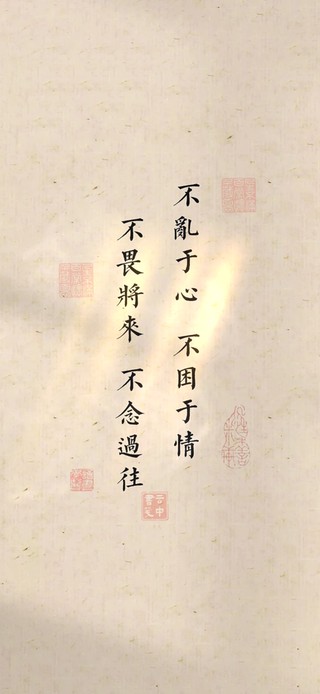 不亂于心　不困于情
不畏將來　不念過往